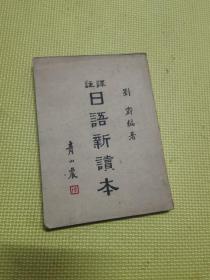 劉爵編著
譯註
日語新讀本
青山農